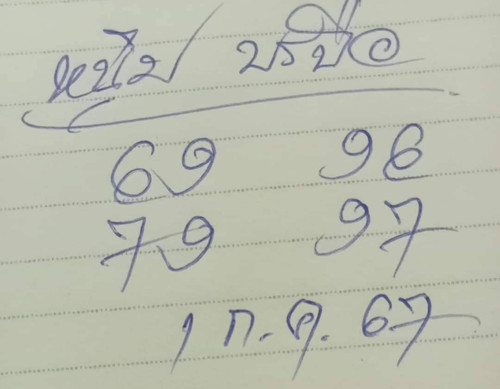 หนุ่ม บรบือ
69 96
79 97
1 ก.ค. 67